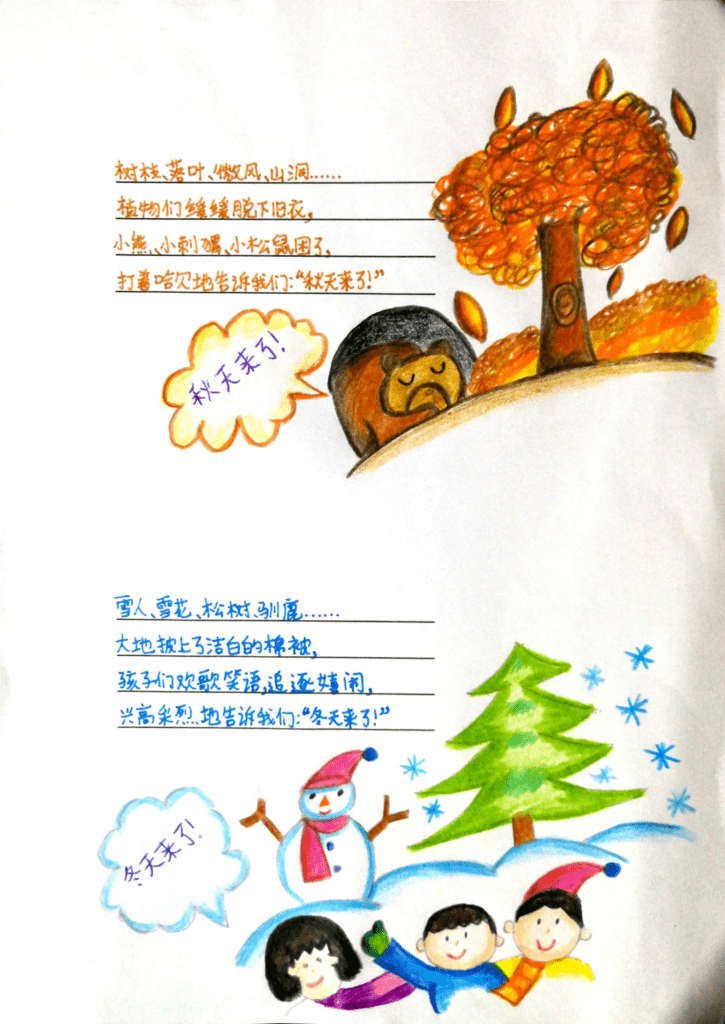 树枝、落叶、微风、山洞……
植物们缓缓脱下旧衣,
小熊、小刺猬、小松鼠困了,
打着哈欠地告诉我们:“秋天来了!”
秋天来了!
雪人、雪花、松树、驯鹿……
大地披上了洁白的棉被,
孩子们欢歌笑语,追逐嬉闹,
兴高采烈地告诉我们:“冬天来了!”
冬天来了!